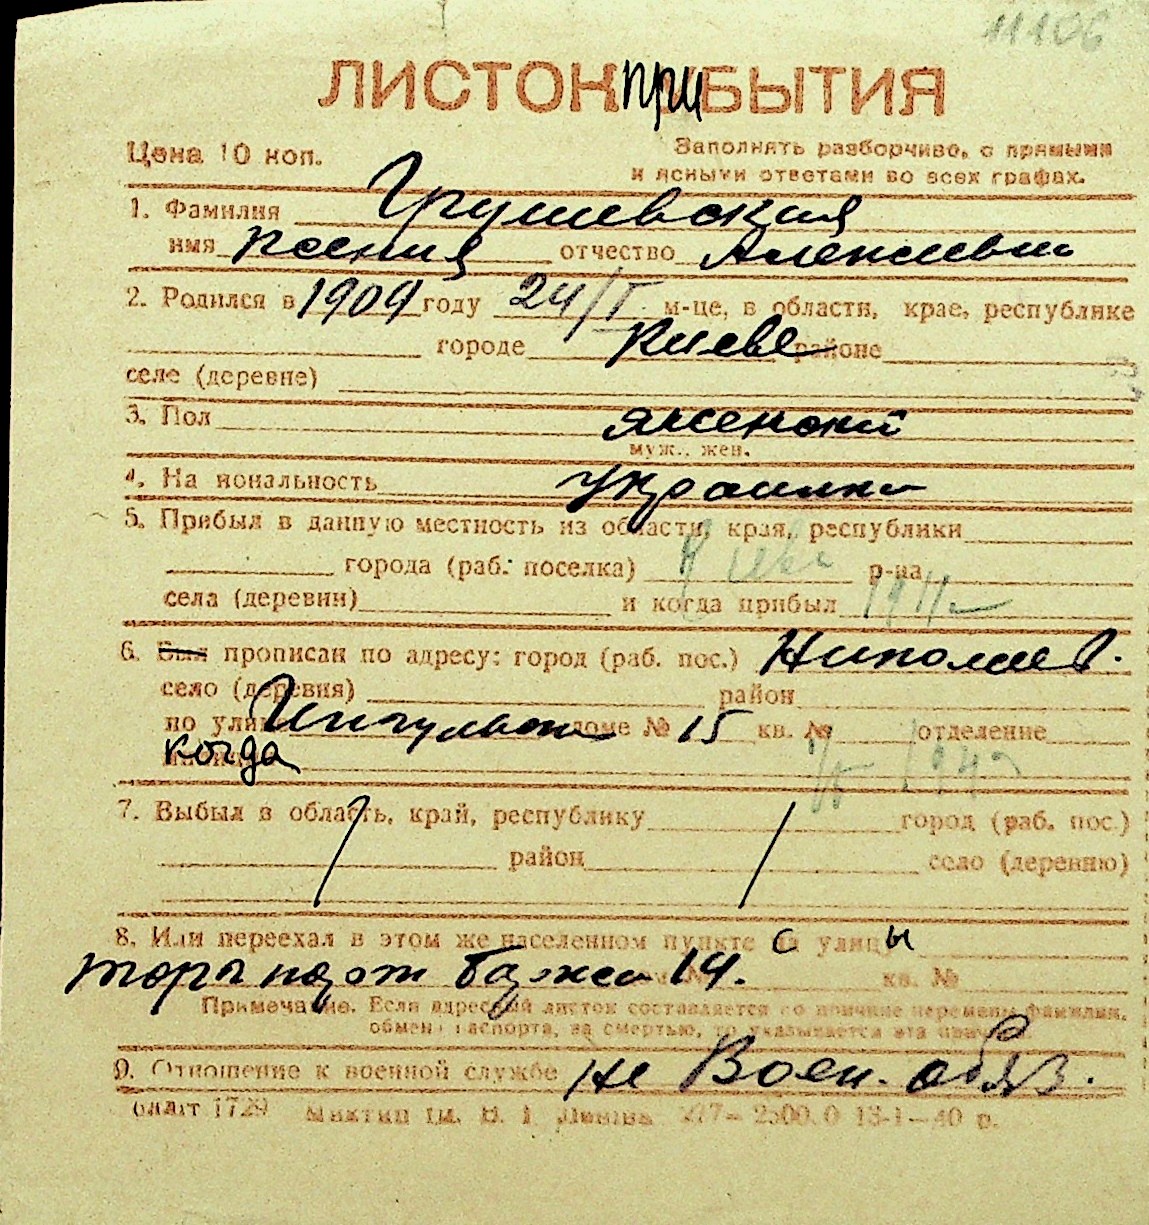 11106
ЛИСТОК ПРИБЫТИЯ
Цена 10 коп.
Заполнять разборчиво, с прямыми
и ясными ответами во всех графах.
1. Фамилия Грушевская
имя Ксения отчество Алексеевн
2. Родился в 1909 году 24/I м-це, в области, крае, республике
городе Киеве районе
селе (деревне)
3. Пол женский
муж., жен.
4. Национальность украинка
5. Прибыл в данную местность из области, края, республики
города (раб. поселка) Киева р-на
села (деревни) и когда прибыл
6. Был прописан по адресу: город (раб. пос.) Николаев.
село (деревня) район
по улице Ингульск доме № 15 кв. № отделение
когда
7. Выбыл в область, край, республику город (раб. пос.)
район село (деревню)
8. Или переехал в этом же населенном пункте с улицы
14. кв. №
Примечание. Если адресный листок составляется по причине перемены фамилии,
обмена паспорта, за смертью, то указывается эта причина.
9. Отношение к военной службе не Воен. обяз.
1729 2500.0 13-1—40 р.